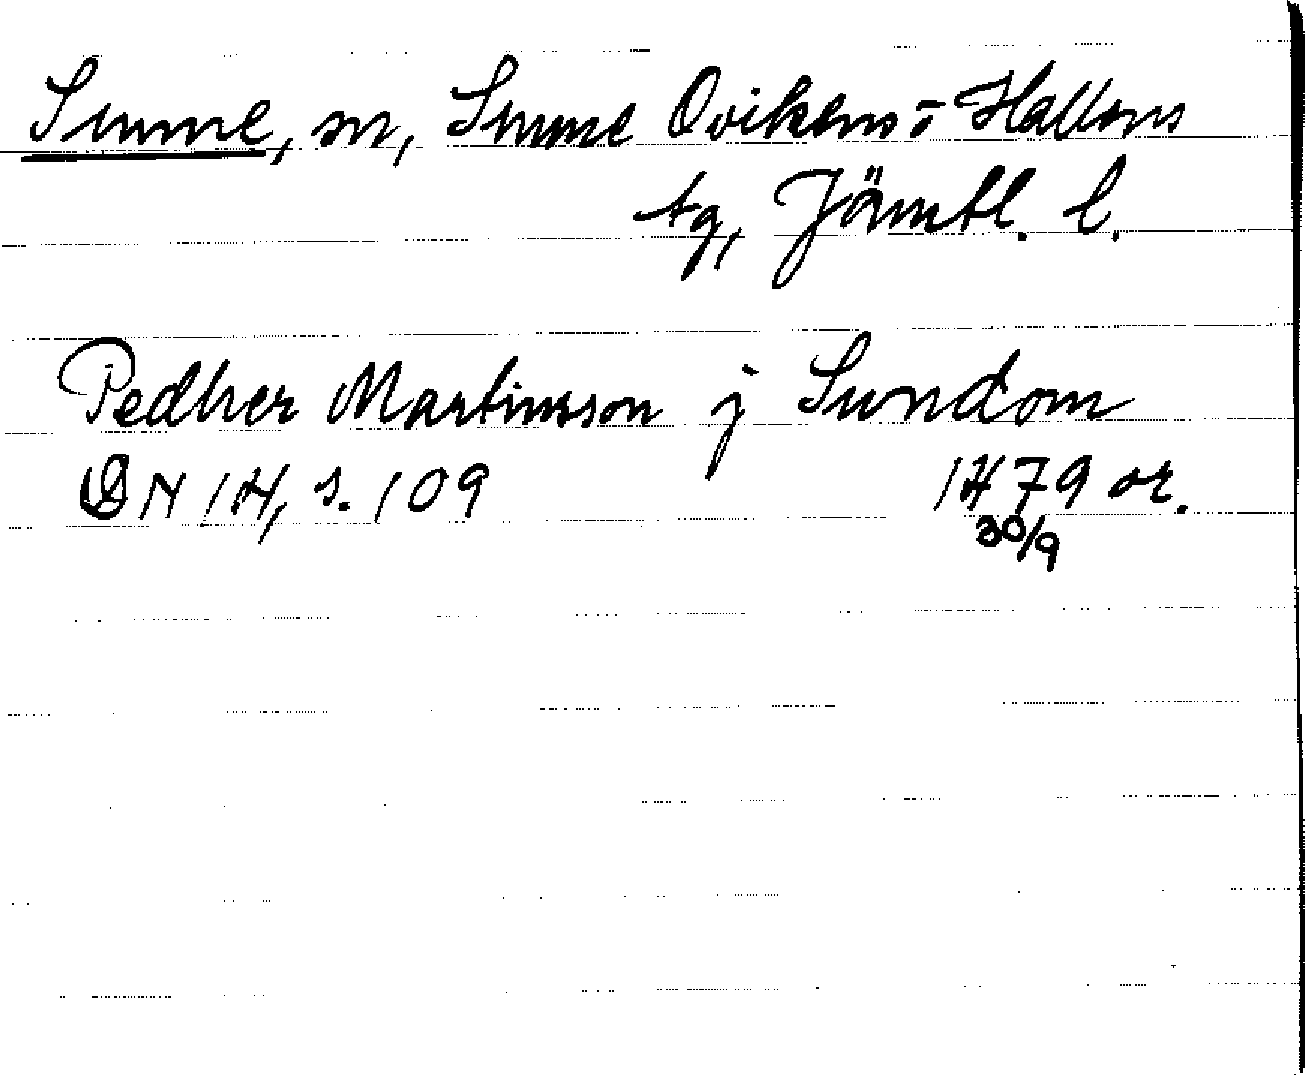 Sunne, sn, Sunne Ovikens o Hallens
tg, Jämtl. l.
Pedher Martinsson j Sundom
DN 14, s. 109 1479 or.
30/9